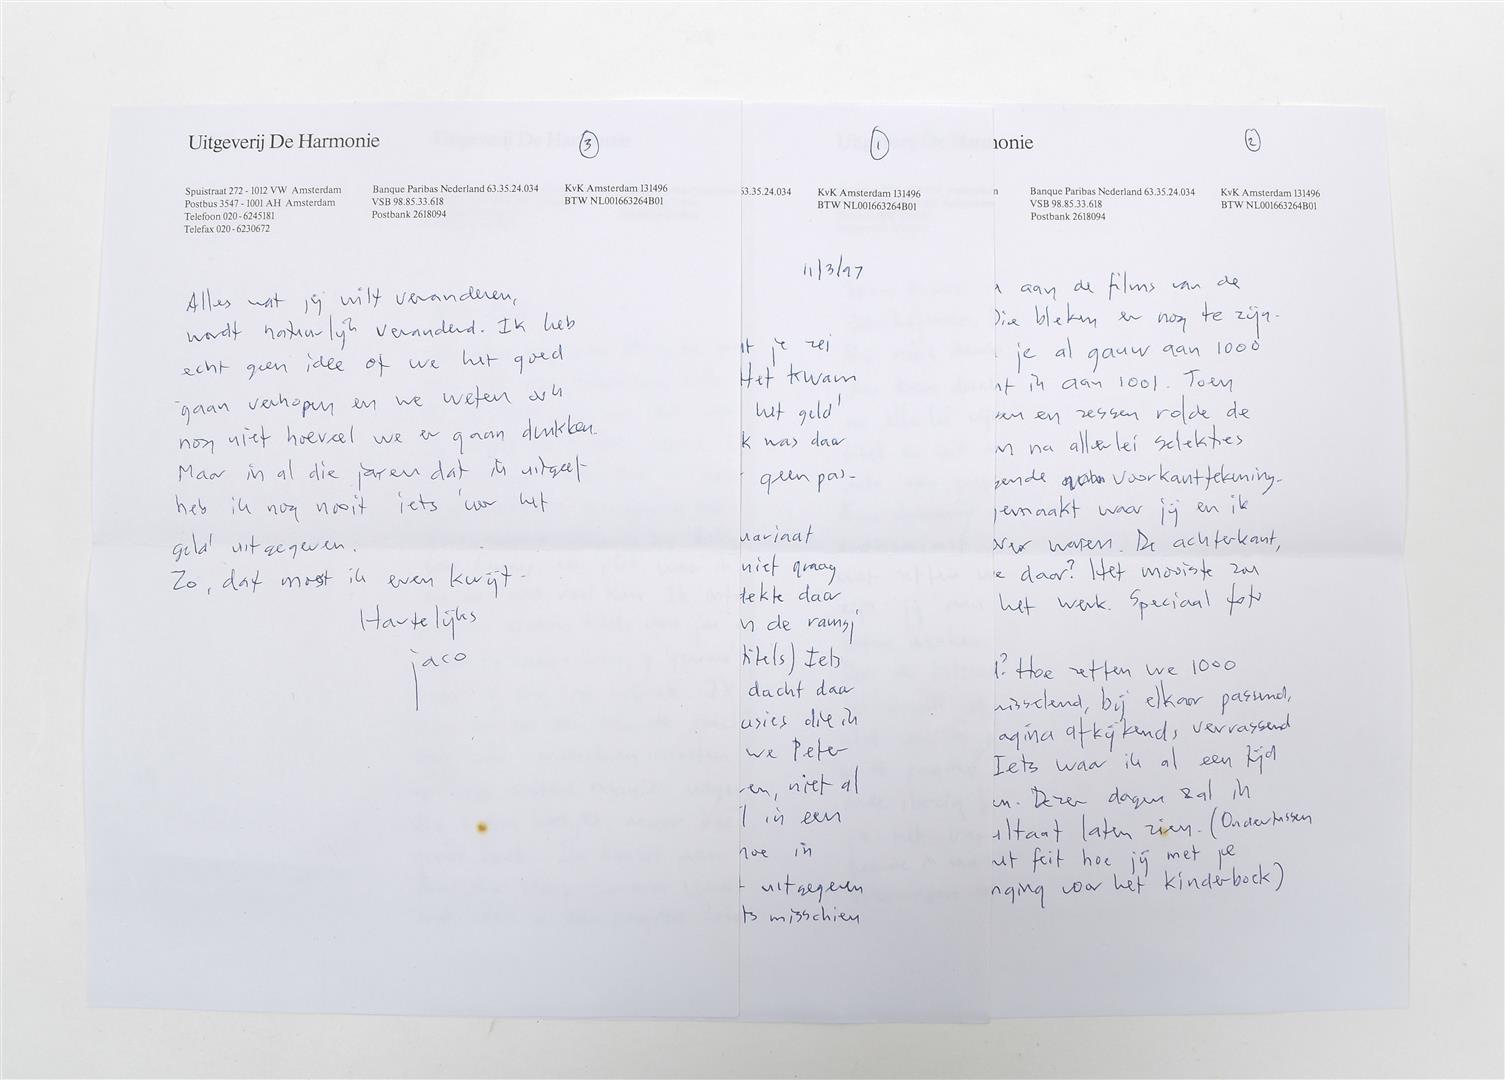 Uitgeverij De Harmonie
3
Spuistraat 272 - 1012 VW Amsterdam
Postbus 3547 - 1001 AH Amsterdam
Telefoon 020 - 6245181
Telefax 020 - 6230672
Banque Paribas Nederland 63.35.24.034
VSB 98.85.33.618
Postbank 2618094
KvK Amsterdam 131496
BTW NL001663264B01
Alles wat jij wilt veranderen,
wordt natuurlijk veranderd. Ik heb
echt geen idee of we het goed
gaan verkopen en we weten ook
nog niet hoeveel we er gaan drukken.
Maar in al die jaren dat ik uitgeef
heb ik nog nooit iets 'voor het
geld' uitgegeven.
Zo, dat moest ik even kwijt.
Hartelijks
jaco
1
63.35.24.034
KvK Amsterdam 131496
BTW NL001663264B01
11/3/97
je zei
Het kwam
het geld'
was daar
geen pas-
uariaat
niet graag
dekte daar
de ramsj
titels) Iets
dacht daar
usies die ik
we Peter
en, niet al
in een
hoe in
uitgegeven
ts misschien
onie
2
Banque Paribas Nederland 63.35.24.034
VSB 98.85.33.618
Postbank 2618094
KvK Amsterdam 131496
BTW NL001663264B01
aan de films van de
Die bleken er nog te zijn.
je al gauw aan 1000
ik aan 1001. Toen
en zessen rolde de
na allerlei selekties
gende voorkanttekening.
gemaakt waar jij en ik
waren. De achterkant,
daar? Het mooiste zou
het werk. Speciaal foto
? Hoe zetten we 1000
wisselend, bij elkaar passend,
agina afkijkends verrassend
Iets waar ik al een tijd
en. Dezer dagen zal ik
ultaat laten zien. (Ondertussen
feit hoe jij met je
nging voor het kinderboek)